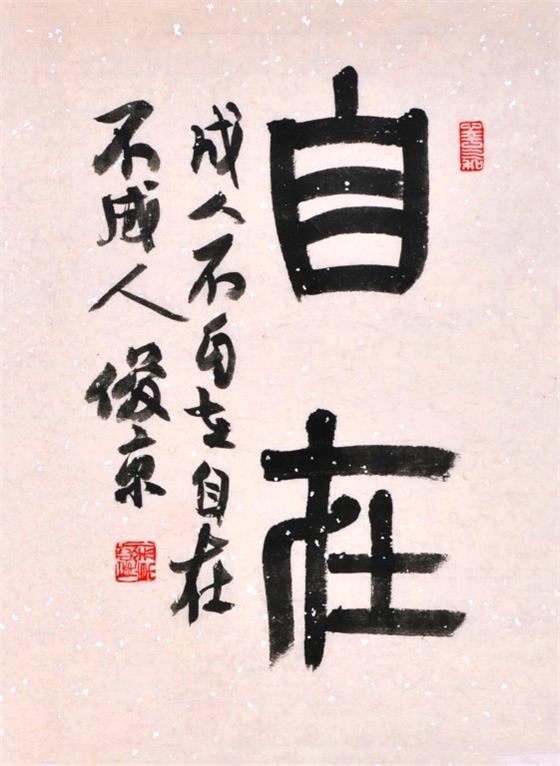 自在
成人不自在自在
不成人 俊京